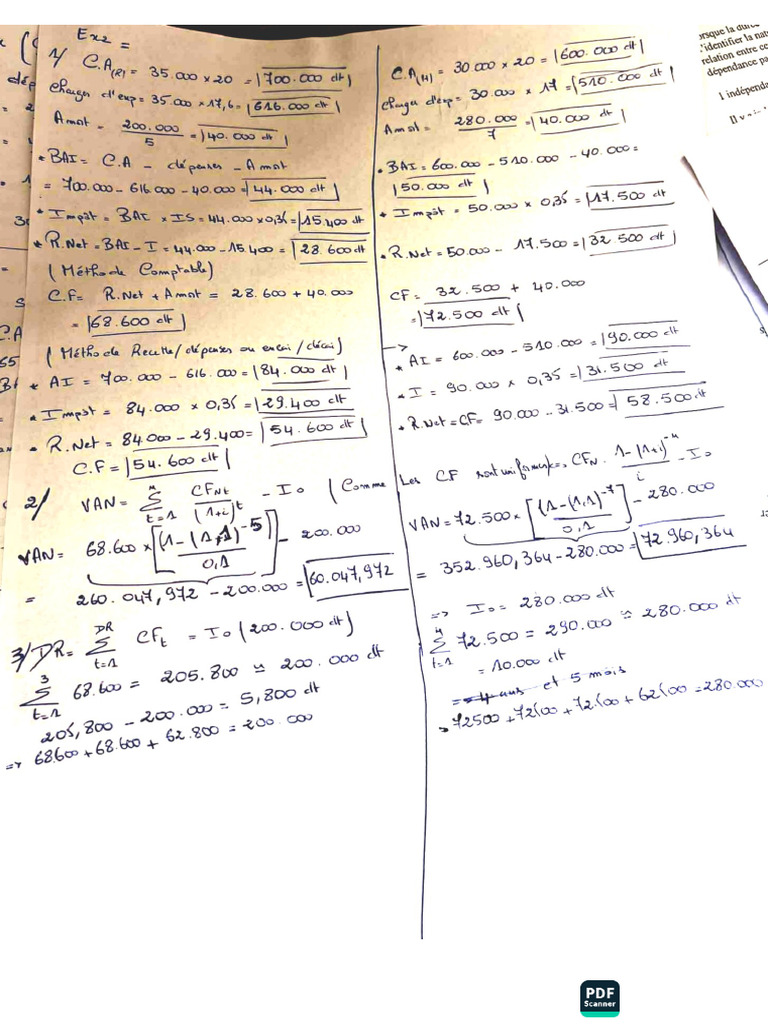 Ex2 =
1/ C.A(R) = 35.000 x 20 = |700.000 dt|
Charges d'exp = 35.000 x 17,6 = |616.000 dt|
Amot = 200.000 / 5 = |40.000 dt|
* BAI = C.A - dépenses - Amot
= 700.000 - 616.000 - 40.000 = |44.000 dt|
* Impôt = BAI x IS = 44.000 x 0,35 = |15.400 dt|
* R.Net = BAI - I = 44.000 - 15.400 = |28.600 dt|
(Méthode Comptable)
C.F = R.Net + Amot = 28.600 + 40.000
= |68.600 dt|
(Méthode Recette/dépenses ou encai/décai)
* AI = 700.000 - 616.000 = |84.000 dt|
* Impôt = 84.000 x 0,35 = |29.400 dt|
* R.Net = 84.000 - 29.400 = |54.600 dt|
C.F = |54.600 dt|
2/ VAN = Σ t=1 n CFNt / (1+i)^t - I0 (Comme Les CF sont uniformes => CFN . 1-(1+i)^-n / i - I0
VAN = 68.600 x [(1-(1,1)^-5) / 0,1] - 200.000
= 260.047,972 - 200.000 = |60.047,972
3/ DR = Σ t=1 DR CFt = I0 (200.000 dt)
Σ t=1 3 68.600 = 205.800 ≃ 200.000 dt
205,800 - 200.000 = 5,800 dt
=> 68.600 + 68.600 + 62.800 = 200.000
C.A(H) = 30.000 x 20 = |600.000 dt|
Charges d'exp = 30.000 x 17 = |510.000 dt|
Amot = 280.000 / 7 = |40.000 dt|
* BAI = 600.000 - 510.000 - 40.000 =
|50.000 dt|
* Impôt = 50.000 x 0,35 = |17.500 dt|
* R.Net = 50.000 - 17.500 = |32.500 dt|
CF = 32.500 + 40.000
= |72.500 dt|
->
* AI = 600.000 - 510.000 = |90.000 dt|
* I = 90.000 x 0,35 = |31.500 dt|
* R.Net = CF = 90.000 - 31.500 = |58.500 dt|
VAN = 72.500 x [(1-(1,1)^-7) / 0,1] - 280.000
= 352.960,364 - 280.000 = |72.960,364
=> I0 = 280.000 dt
Σ t=1 n 72.500 = 290.000 ≃ 280.000 dt
= 10.000 dt
= 4 ans et 5 mois
72500 + 72500 + 72500 + 62500 = 280.000
orsque la
l'identifier la
relation entre
dépendance
1 indépend
PDF
Scanner